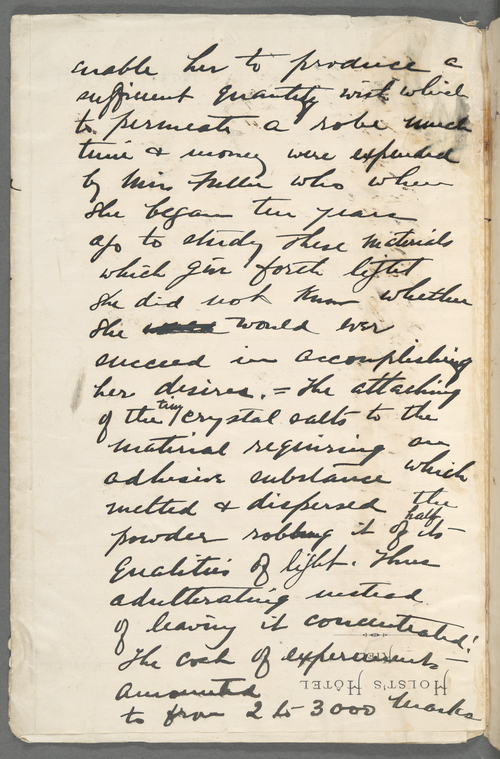 enable her to produce a
sufficient quantity with which
to permeate a robe much
time & money were expended
by Miss Fuller who when
she began ten years
ago to study these materials
which give forth light
she did not know whether
she would ever
succeed in accomplishing
her desires. = The attaching
of the tiny crystal salts to the
material requiring an
adhesive substance which
melted & dispersed the
powder robbing it of half its
qualities of light. Thus
adulterating instead
of leaving it concentrated!
The cost of experiments
amounted
to from 2 to 3000 Marks
HOLST'S HÔTEL
KIEL